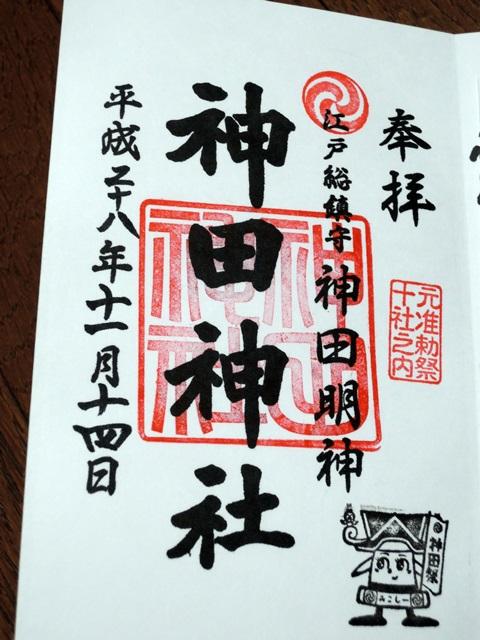 奉拝
元准勅祭
十社之内
江戸総鎮守 神田明神
神田神社
平成二十八年十一月十四日
神田祭
みこしー